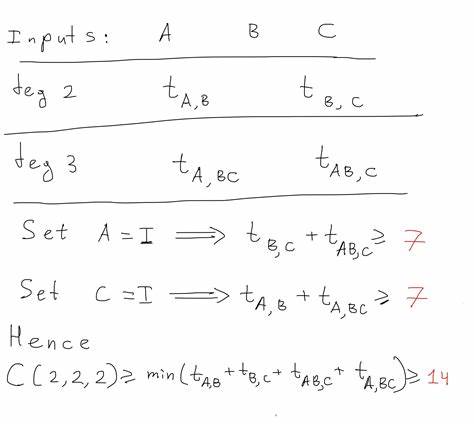 Inputs: A B C
deg 2 t_{A,B} t_{B,C}
deg 3 t_{A,BC} t_{AB,C}
Set A = I ⟹ t_{B,C} + t_{AB,C} ≥ 7
Set C = I ⟹ t_{A,B} + t_{A,BC} ≥ 7
Hence
C(2,2,2) ≥ min(t_{AB} + t_{B,C} + t_{AB,C} + t_{A,BC}) ≥ 14